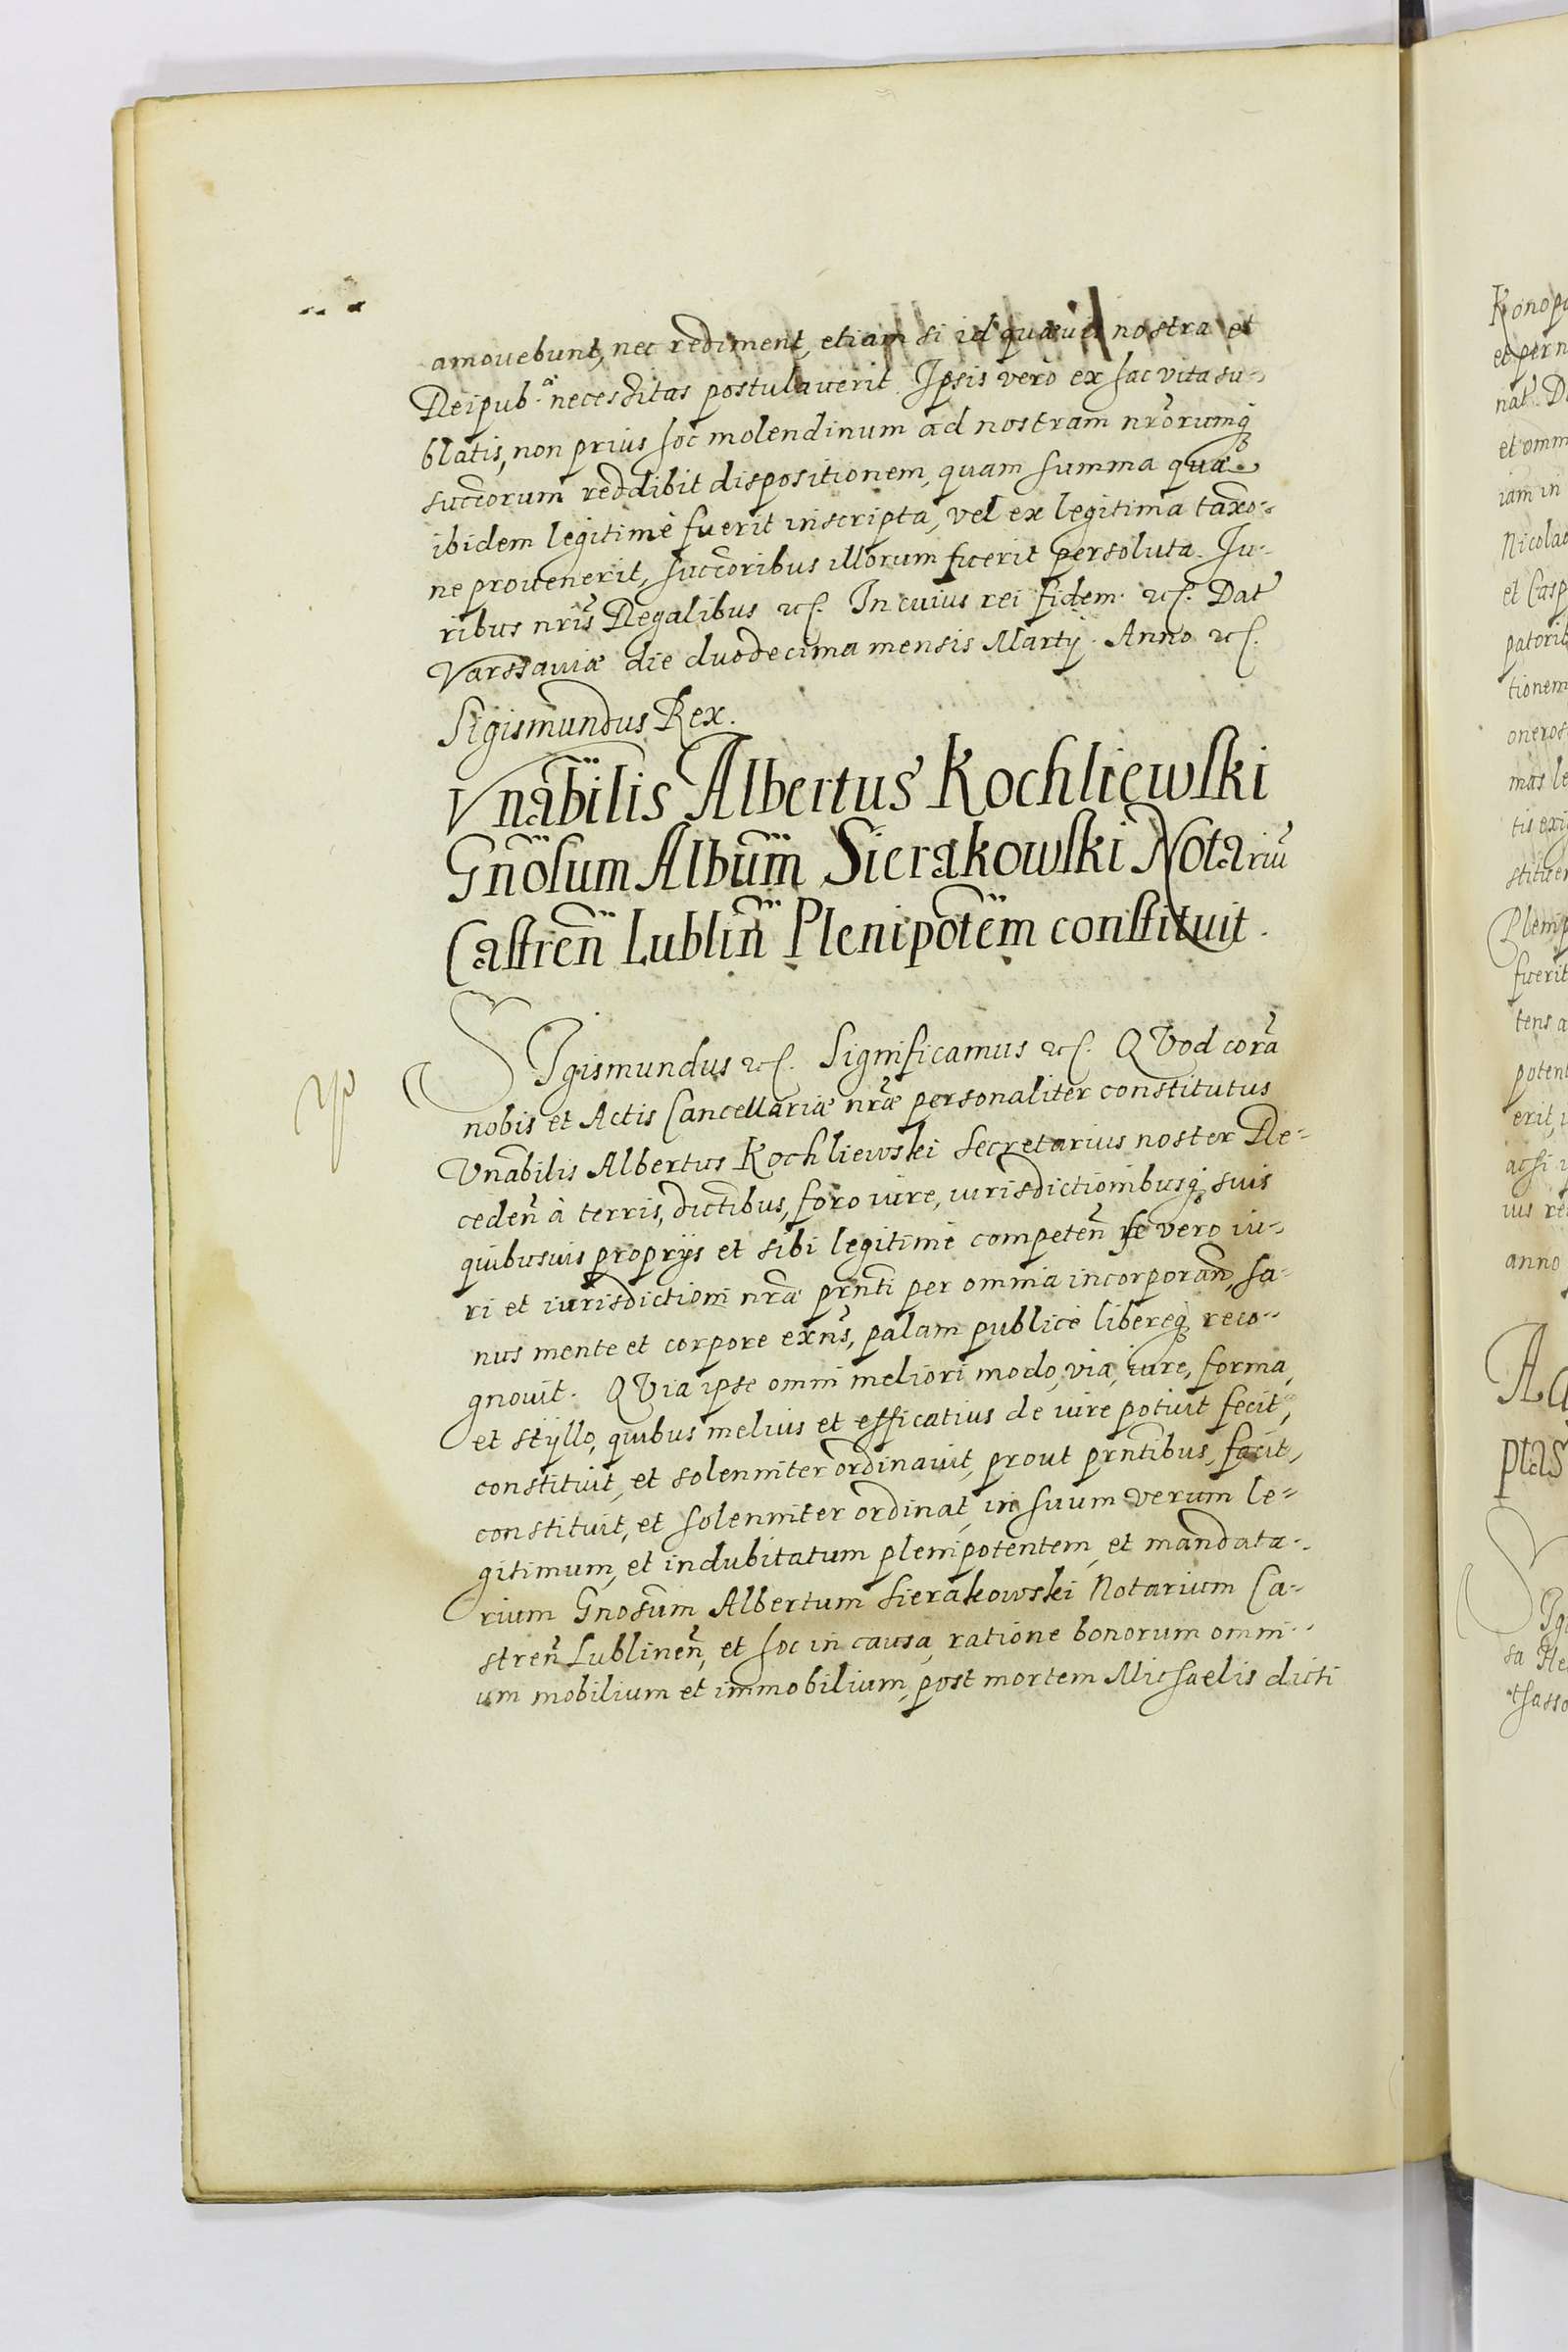 amouebunt, nec rediment, etiam si id quæuis nostra et
Reipub.ᵃᵉ necessitas postulauerit. Ipsis vero ex hac vita su-
blatis, non prius hoc molendinum ad nostram nr̃orumq́
succ̃orum reddibit dispositionem, quam summa quæ
ibidem legitimè fuerit inscripta, vel ex legitima tax̃o-
ne prouenerit, succ̃oribus illorum fuerit persoluta. Iu-
ribus nr̃is Regalibus etc. In cuius rei fidem etc. Dat̃
Varssauiæ die duodecima mensis Martij. Anno etc.
Sigismundus Rex.
Vnãbilis Albertus Kochliewski
Gnõsum Albũm Sierakowski Notariũ
Castreñ Lubliñ Plenipotẽm constituit.
SIgismundus etc. Significamus etc. QVod corã
nobis et Actis Cancellariæ nr̃æ personaliter constitutus
Vnãbilis Albertus Kochliewski Secretarius noster Re-
cedeñ à terris, dictĩbus, foro iure, iurisdictionibusq́ suis
quibusuis proprijs et sibi legitimè competeñ se vero iu-
ri et iurisdictioni nr̃æ prñti per omnia incorporañ, sa-
nus mente et corpore exñs, palam publicè liberèq́ reco-
gnouit. QVia ipse omni meliori modo, via, iure, forma,
et styllo, quibus melius et efficatius de iure potuit fecit,
constituit, et solenniter ordinauit, prout prñtibus, facit,
constituit, et solenniter ordinat, in suum verum le-
gitimum, et indubitatum plenipotentem, et mandata-
rium Gnõsum Albertum Sierakowski Notarium Ca-
streñ Lublineñ, et hoc in causa, ratione bonorum omni-
um mobilium et immobilium, post mortem Michaelis dicti
Konop
et per n
nat̃. D
et omn
iam in
Nicola
et Casp
patorib
tionem
oneros
mas le
tis exi
stituer
Plenip
fuerit
tens a
potent
erit,
ac si
ius re
anno
Ac
ptas
SIgi
sa He